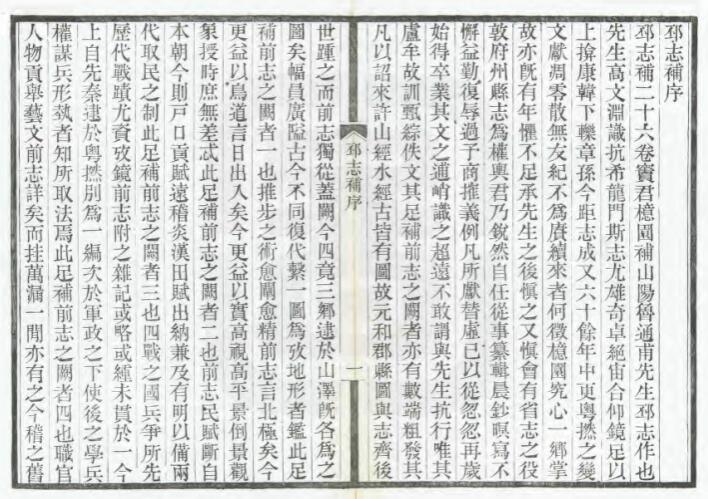 邳志補序
邳志補二十六卷竇君檍園補山陽魯通甫先生邳志作也
先生高文淵識抗希龍門斯志尤雄奇卓絕宙合仰鏡足以
上揜康韓下轢章孫今距志成又六十餘年中更粵捻之變
文獻凋零散無友紀不為賡續來者何徵檍園究心一鄉掌
故亦既有年懼不足承先生之後慎之又慎會有省志之役
敦府州縣志為權輿君乃銳然自任從事纂輯晨鈔暝寫不
懈益勤復辱過予商搉義例凡所獻替虛己以從忽忽再歲
始得卒業其文之遒峭識之超遠不敢謂與先生抗行唯其
廬牟故訓甄綜佚文其足補前志之闕者亦有數端粗發其
凡以詔來許山經水經古皆有圖故元和郡縣圖與志齊後
邳志補序
一
世踵之而前志獨從蓋闕今四竟三鄉逮於山澤既各為之
圖矣幅員廣隘古今不同復代繫一圖為攷地形者鑑此足
補前志之闕者一也推步之術愈闡愈精前志言北極矣今
更益以鳥道言日出入矣今更益以實高視高平景倒景觀
象授時庶無差忒此足補前志之闕者二也前志民賦斷自
本朝今則戶口貢賦遠稽炎漢田賦出納兼及有明以備兩
代取民之制此足補前志之闕者三也四戰之國兵爭所先
歷代戰蹟尤資攷鏡前志附之雜記或略或緟未貫於一今
上自先秦逮於粵捻別為一編次於軍政之下使後之學兵
權謀兵形埶者知所取法焉此足補前志之闕者四也職官
人物貢舉藝文前志詳矣而挂萬漏一閒亦有之今稽之舊